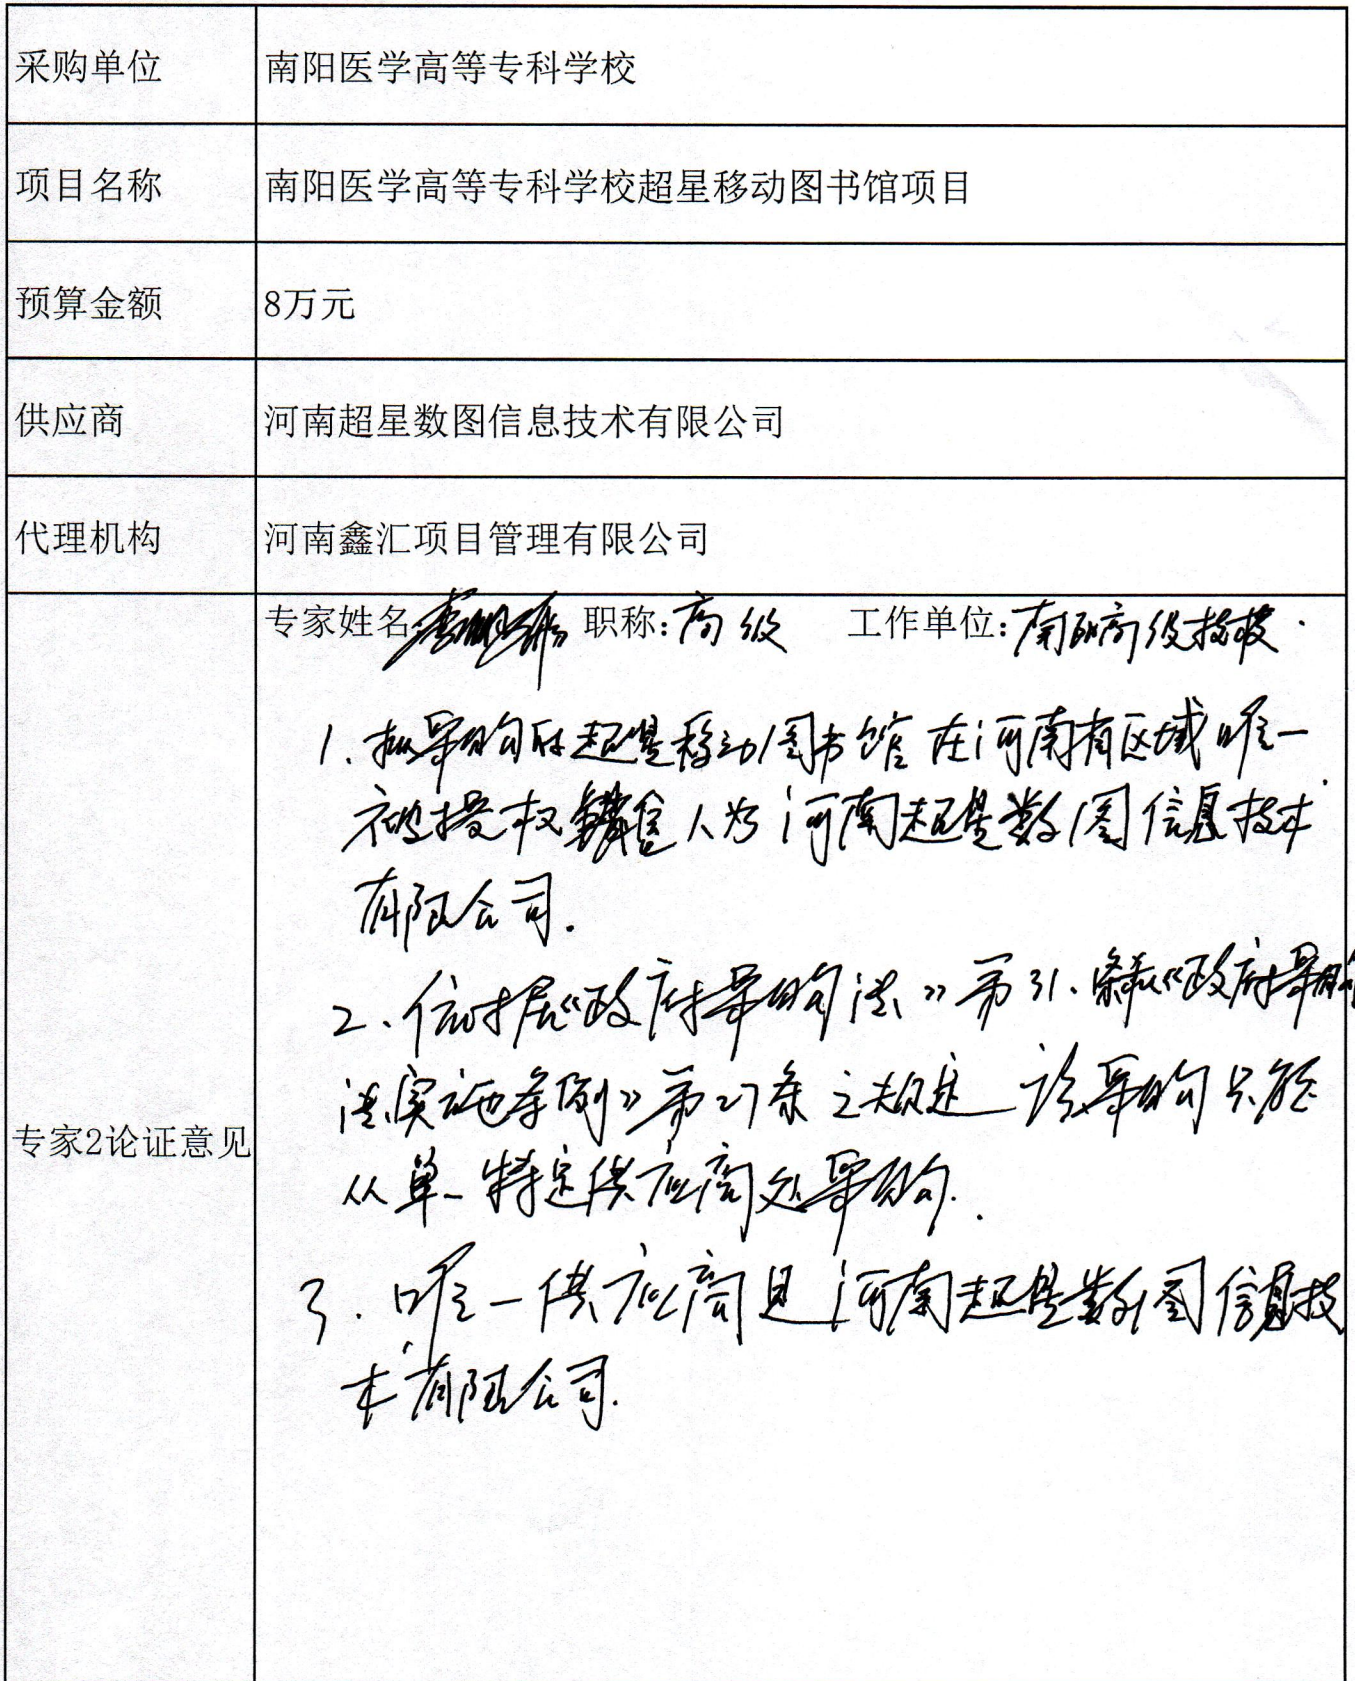 采购单位 南阳医学高等专科学校
项目名称 南阳医学高等专科学校超星移动图书馆项目
预算金额 8万元
供应商 河南超星数图信息技术有限公司
代理机构 河南鑫汇项目管理有限公司
专家姓名: 职称:高级 工作单位:南阳高级技校.
1.拟采购的超星移动图书馆在河南省区域唯一
被授权销售人为河南超星数图信息技术
有限公司.
2、依据《政府采购法》第31、条和《政府采购
法实施条例》第27条之规定 该采购只能
专家2论证意见
从单一特定供应商处采购.
3.唯一供应商是河南超星数图信息技
术有限公司.